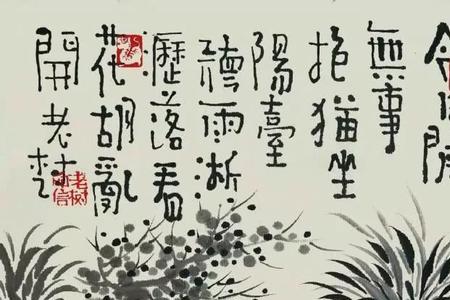 今
無事
抱猫坐
陽臺
聽雨淅
瀝落看
花胡亂
開老树